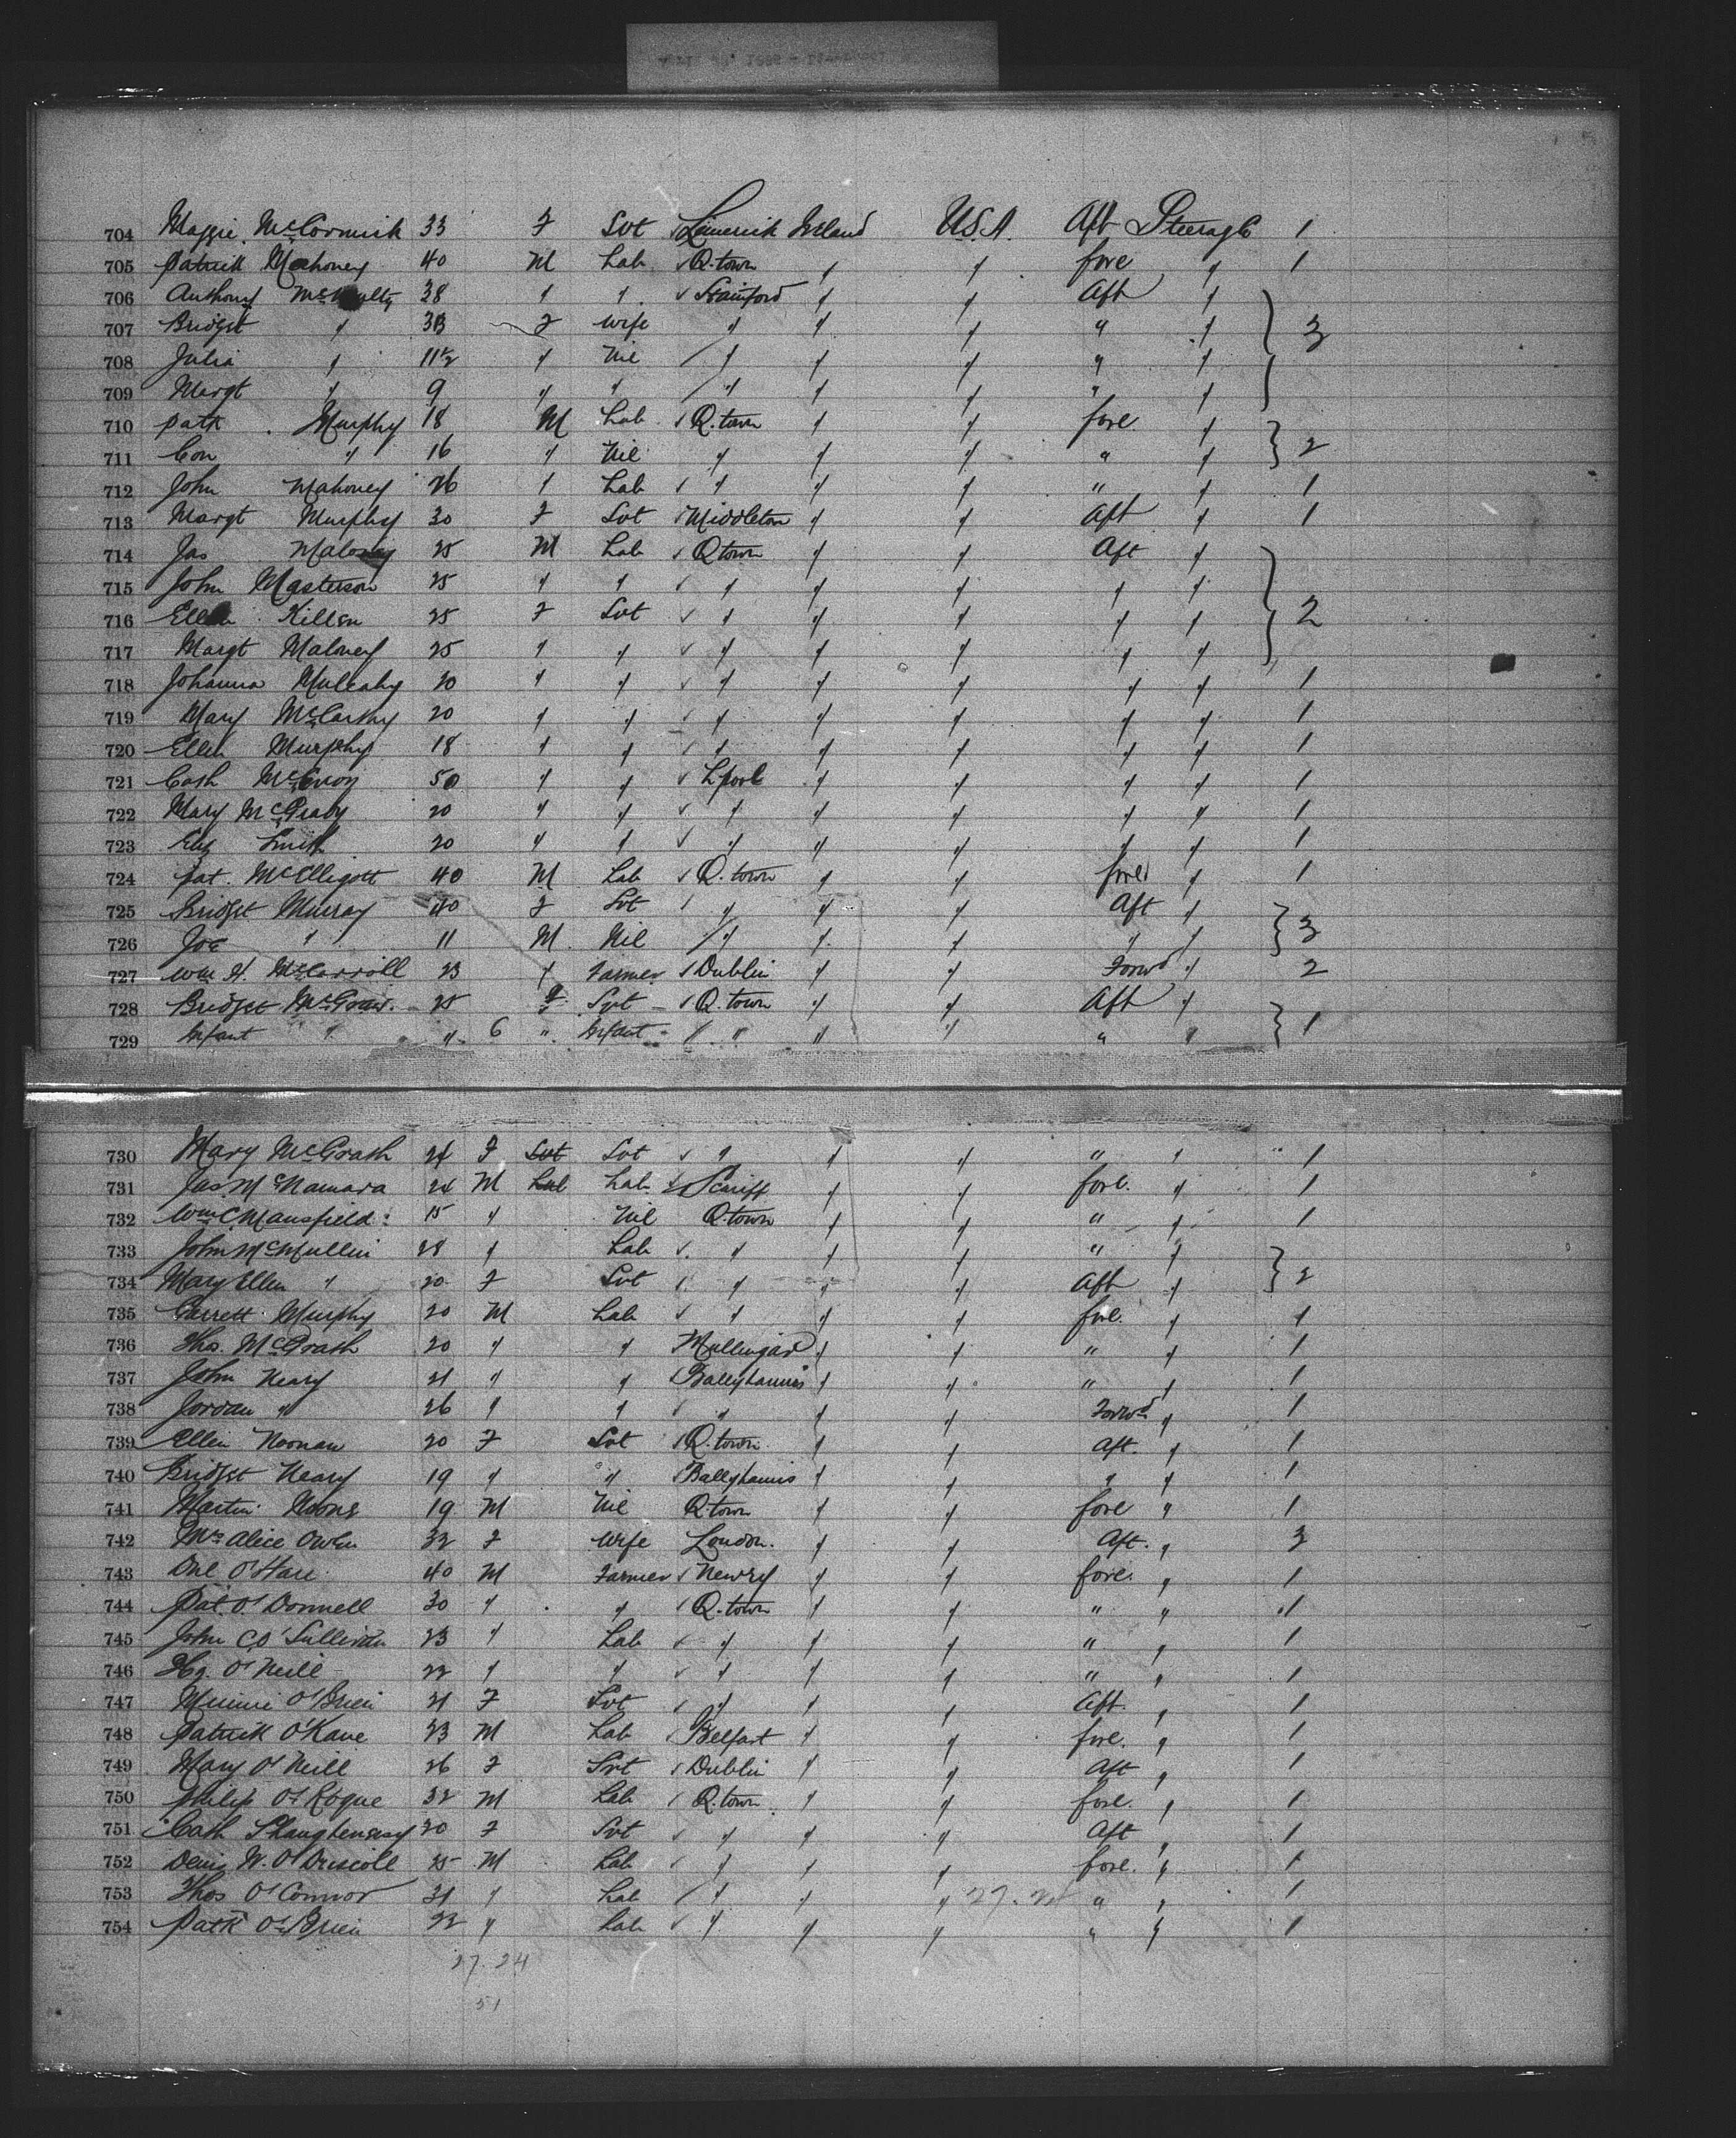 704 Maggie McCormick 33 F Svt Limerick Ireland U.S.A. Aft Steerage 1
705 Patrick Mahoney 40 M Lab Q.town " " fore " 1
706 Anthony 38 " " " " Aft "
707 Bridget " 33 F wife " " " " " 3
708 Julia " 11½ " Nil " " " " "
709 Margt " 9 " " " " " " "
710 Patk Murphy 18 M Lab Q.town " " fore "
711 Con " 16 " Nil " " " " " 2
712 John Mahoney 26 " Lab " " " " " 1
713 Margt Murphy 30 F Svt Middleton " " Aft " 1
714 Jas Maloney 25 M Lab Q town " " Aft "
715 John Masterson 25 " " " " " " "
716 Ellen Killen 25 F Svt " " " " " 2
717 Margt Maloney 25 " " " " " " "
718 Johanna Mulcahy 20 " " " " " " " 1
719 Mary McCarthy 20 " " " " " " " 1
720 Ellen Murphy 18 " " " " " " " 1
721 Cath McEvoy 50 " " L'pool " " " " 1
722 Mary McGrady 20 " " " " " " " 1
723 Eliz Smith 20 " " " " " " " 1
724 Pat. McElligott 40 M Lab Q.town " " fore " 1
725 Bridget Murray 40 F Svt " " " Aft "
726 Joe " 11 M Nil " " " " " 3
727 Wm H. McCarroll 23 " Farmer Dublin " " Forwd " 2
728 Bridget McGraw 25 F Svt Q.town " " Aft "
729 Infant " " 6 " Infant " " " " " 1
730 Mary McGrath 24 F Svt Svt " " " " " 1
731 Jas McNamara 24 M Lab Lab Scariff " " fore. " 1
732 Wm C. Mansfield 15 " Nil Q.town " " " " 1
733 John McMullin 28 " Lab " " " " "
734 Mary Ellen " 20 F Svt " " " Aft " 2
735 Garrett Murphy 20 M Lab " " " fore. " 1
736 Thos. McGrath 20 " " Mullingar " " " " 1
737 John Neary 21 " " Ballyhaunis " " " " 1
738 Jordan " 26 " " " " " Forwd " 1
739 Ellen Noonan 20 F Svt Q.town " " Aft. " 1
740 Bridget Neary 19 " " Ballyhaunis " " " " 1
741 Martin Noone 19 M Nil Q.town " " fore " 1
742 Mrs Alice Owen 32 F Wife London. " " Aft. " 3
743 O'Hare 40 M Farmer Newry " " fore. " 1
744 Pat. O'Donnell 30 " " Q.town " " " " 1
745 John C O'Sullivan 23 " Lab " " " " " 1
746 Hy. O'Neill 22 " " " " " " " 1
747 Minnie O'Brien 21 F Svt " " " Aft. " 1
748 Patrick O'Kane 23 M Lab Belfast " " fore. " 1
749 Mary O'Neill 26 F Svt Dublin " " Aft " 1
750 Philip O'Rogue 32 M Lab Q.town " " fore. " 1
751 Cath 20 F Svt " " " Aft " 1
752 Denis W. O'Driscoll 25 M Lab " " " fore. " 1
753 Thos O'Connor 21 " Lab " " " " " 1
754 Patk O'Brien 22 " Lab " " " " " 1
27. 24
51